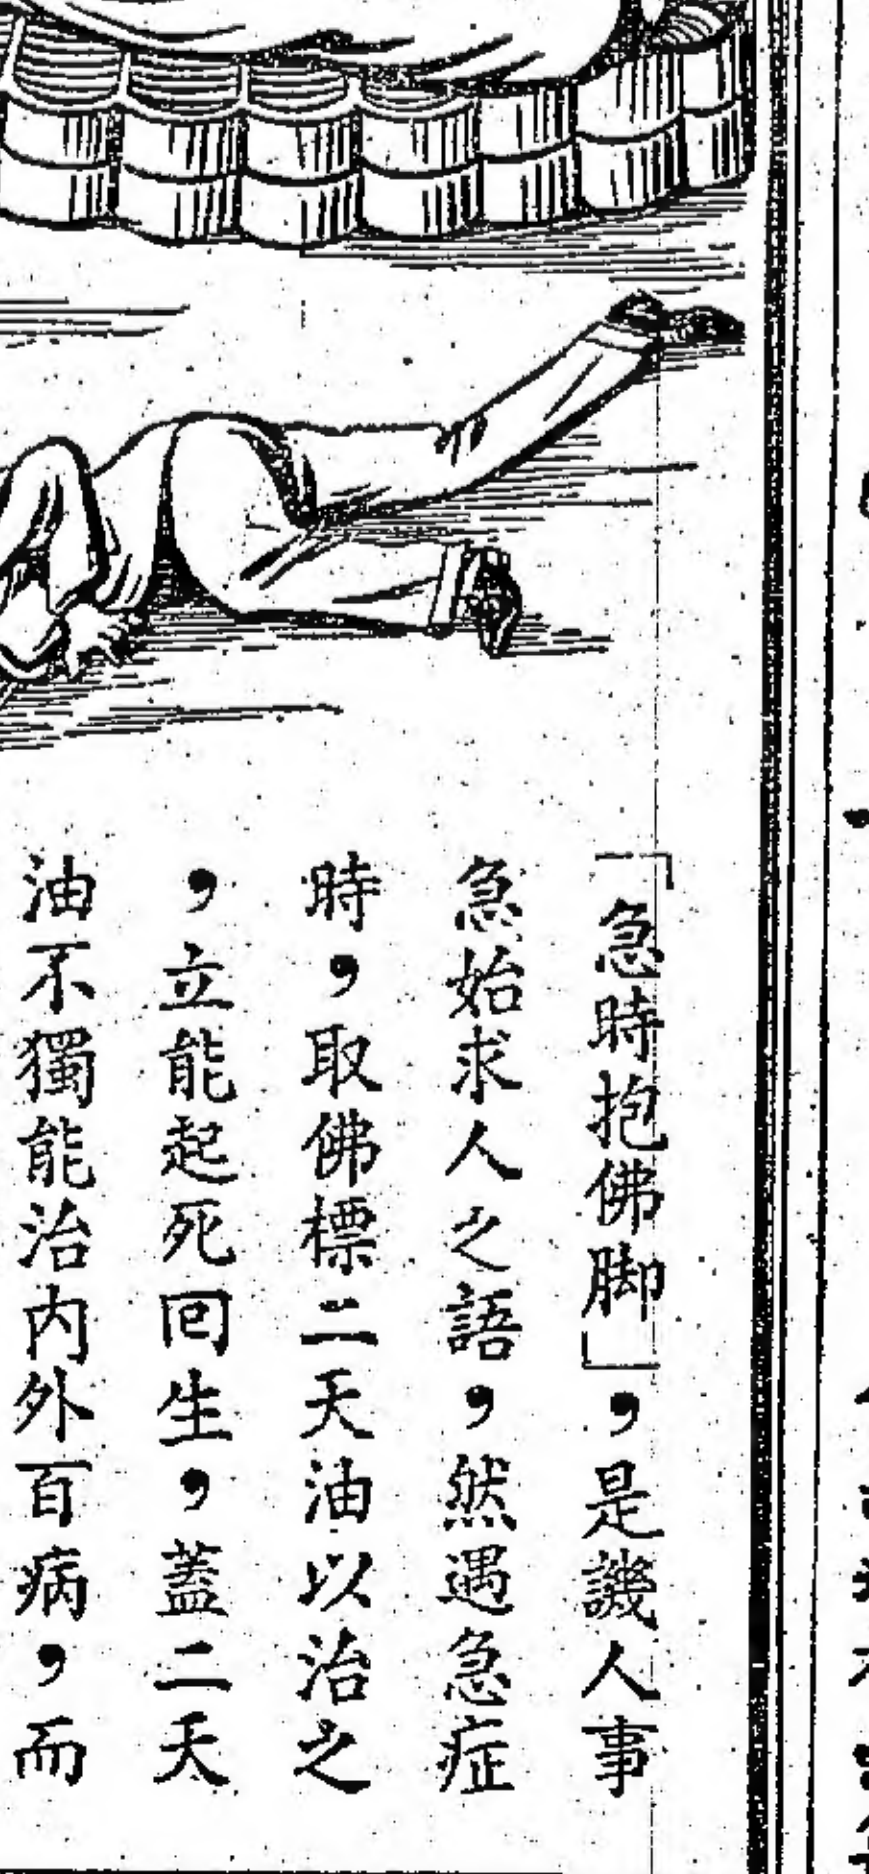 「急時抱佛脚」，是譏人事
急始求人之語，然遇急症
時，取佛標二天油以治之
，立能起死回生，蓋二天
油不獨能治內外百病，而